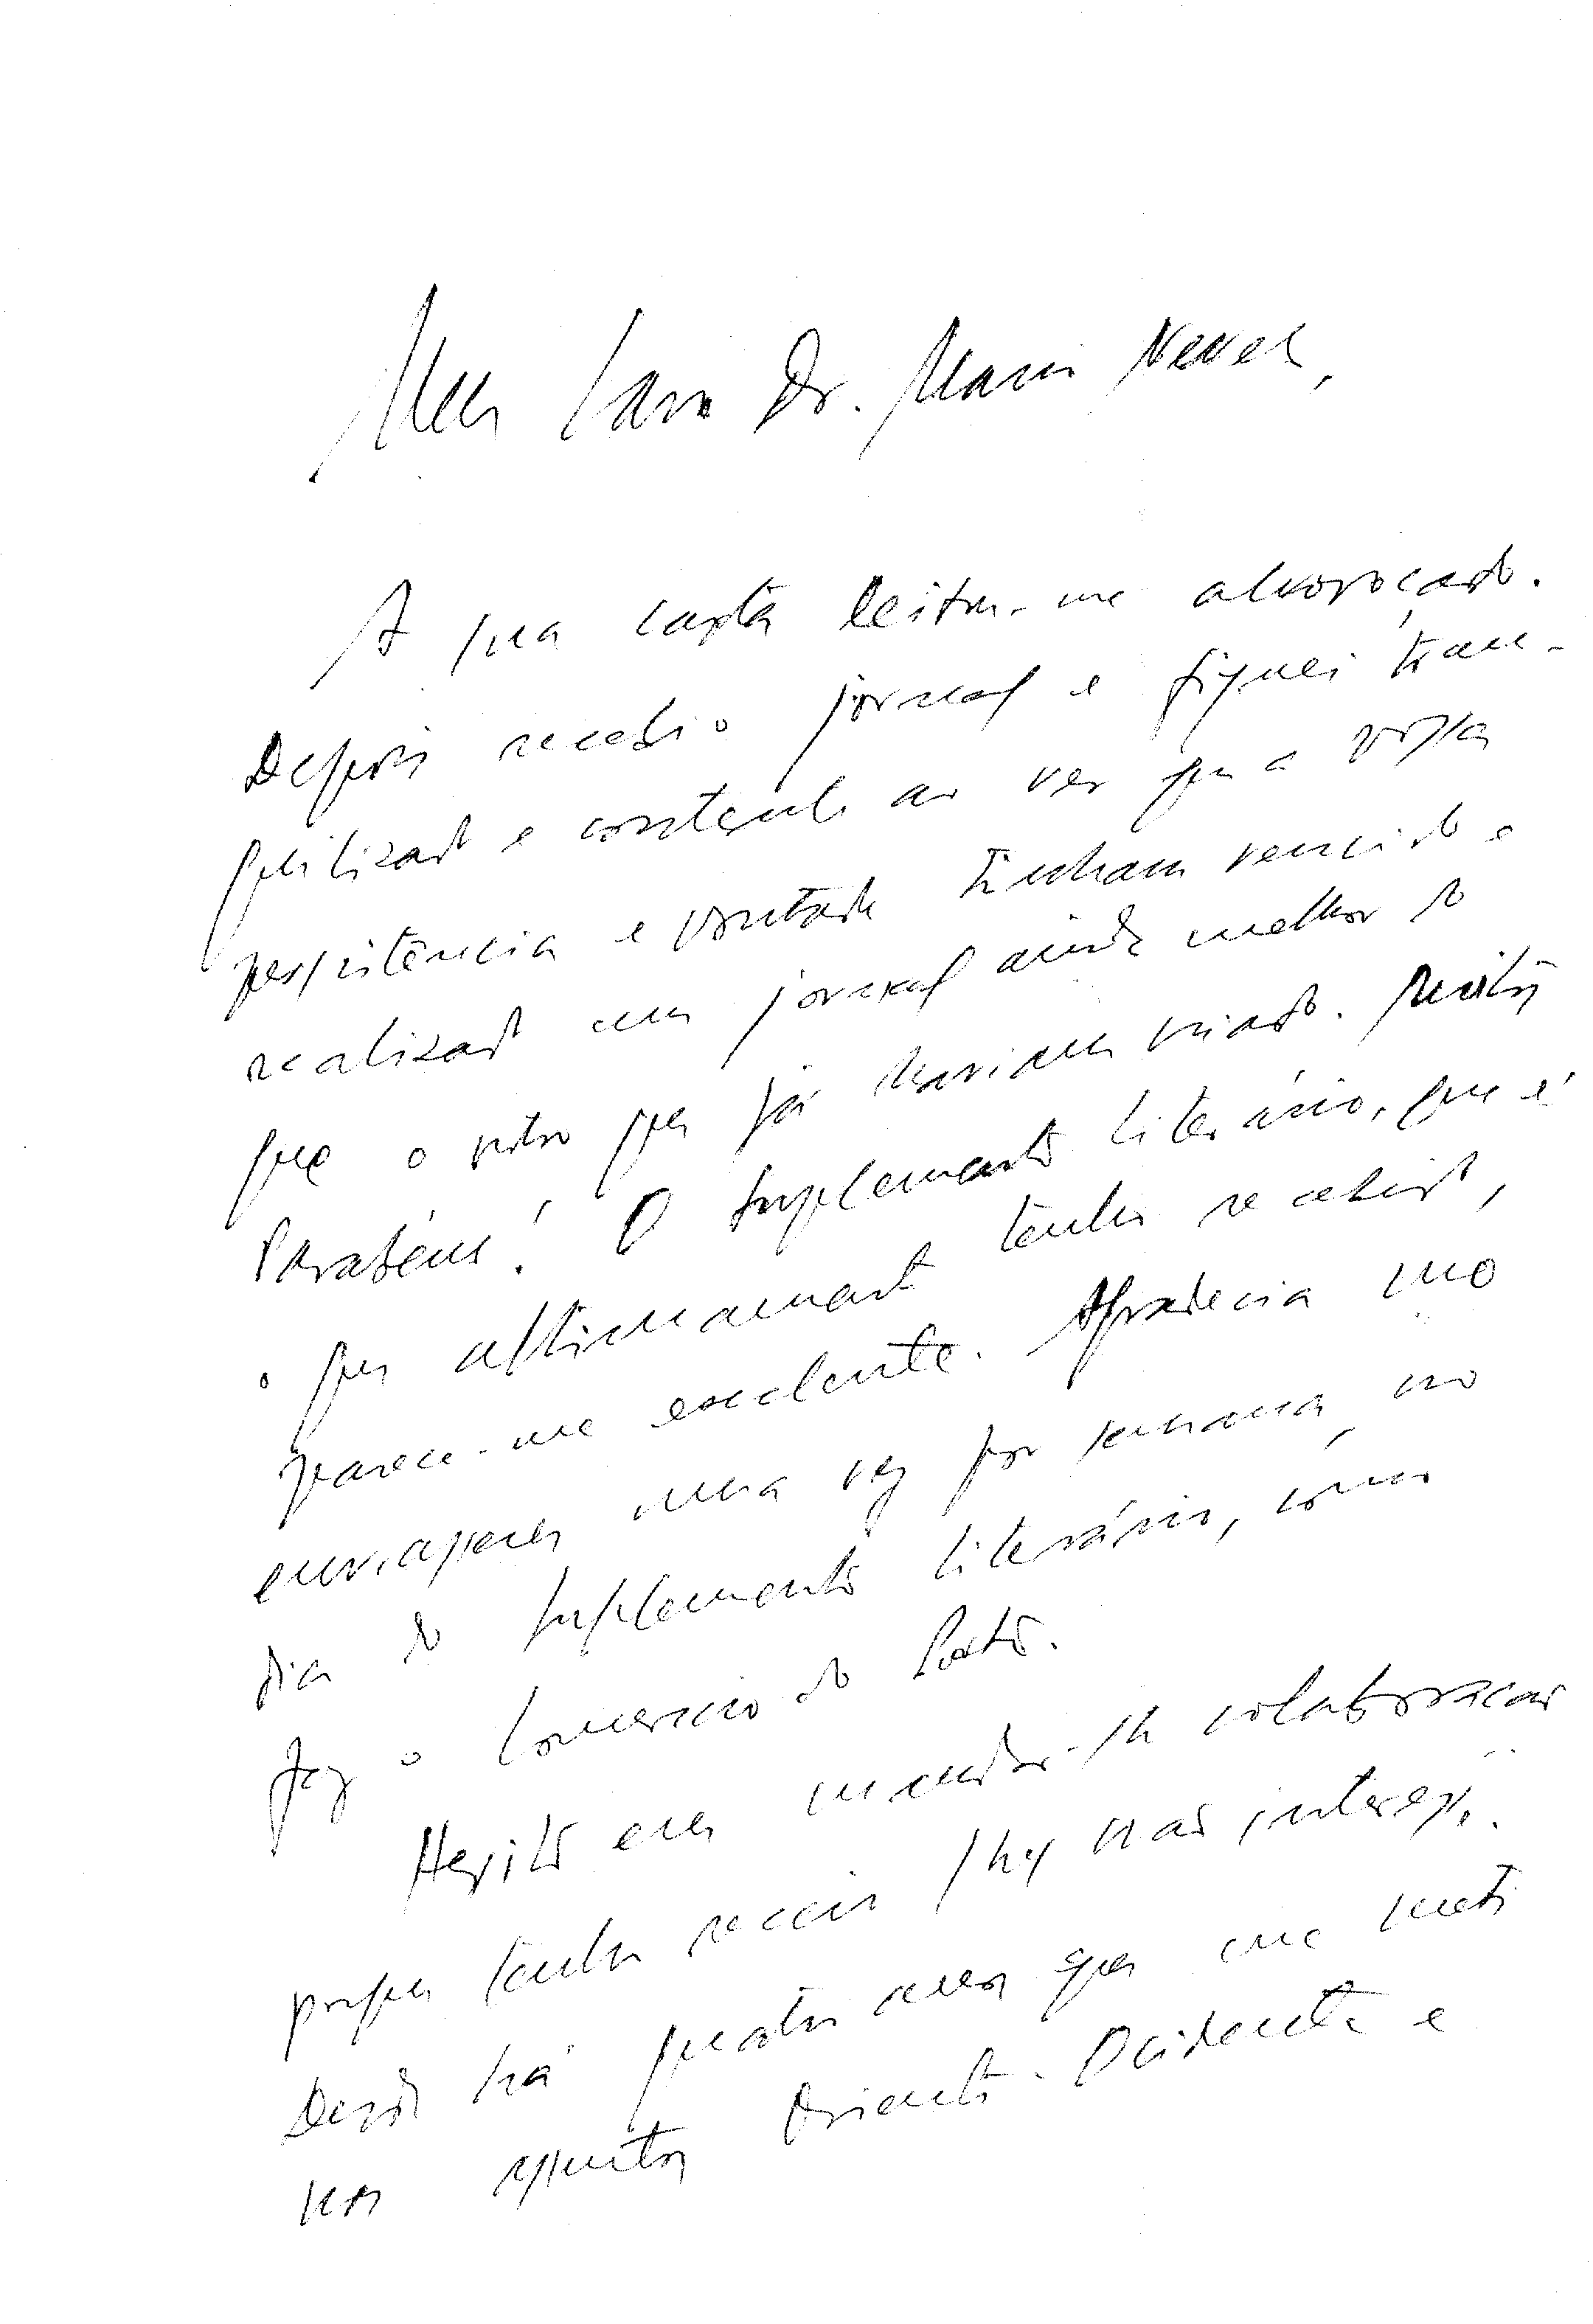 Meu Caro Dr. Mario Neves,
A sua carta deixou-me alvoroçado.
Depois recebi o jornal e fiquei tran-
quilizado e contente ao ver que a vossa
persistência e vontade tinham vencido e
realizado um jornal ainda melhor do
que o outro que já haviam criado. Muitos
Parabéns! O Suplemento Literário, que é
o que ultimamente tenho recebido,
parece-me excelente. Agradecia mo
enviassem uma vez por semana, no
dia do Suplemento Literário, como
faz o Comercio do Porto.
Hesito em mandar-lhe colaboração
porque tenho receio lhes não interesse.
Desde há quatro anos que me meti
nos assuntos Oriente-Ocidente e